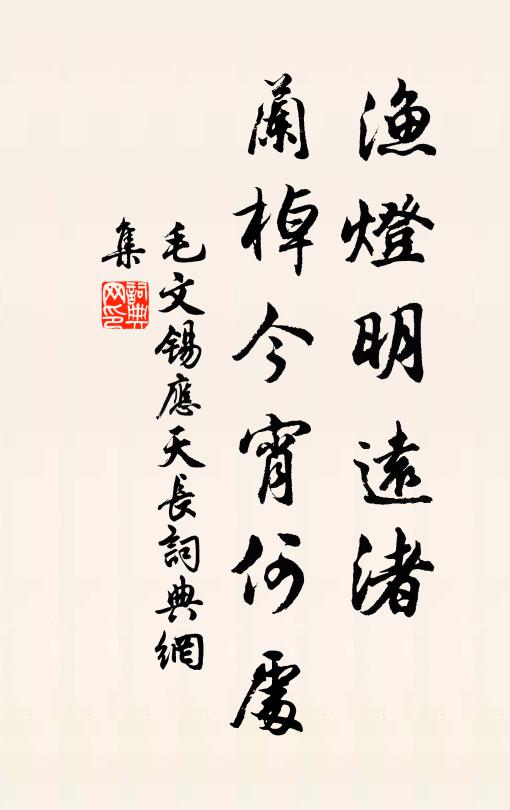 漁燈明遠渚
蘭棹今宵何處
毛文锡應天長詞典網
集
詞典网印